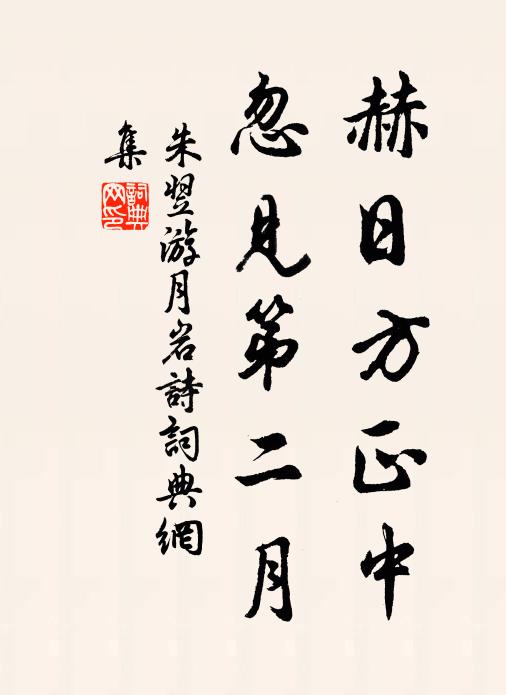 赫日方正中
忽见第二月
朱翌游月岩詩詞典網
集
詞典
网印